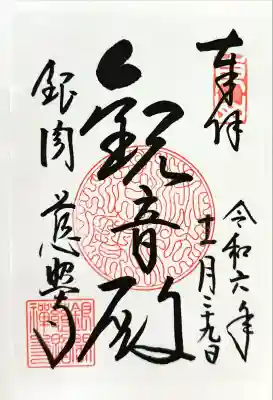 奉拝
令和六年
十一月二十九日
観音殿
銀閣 慈照寺